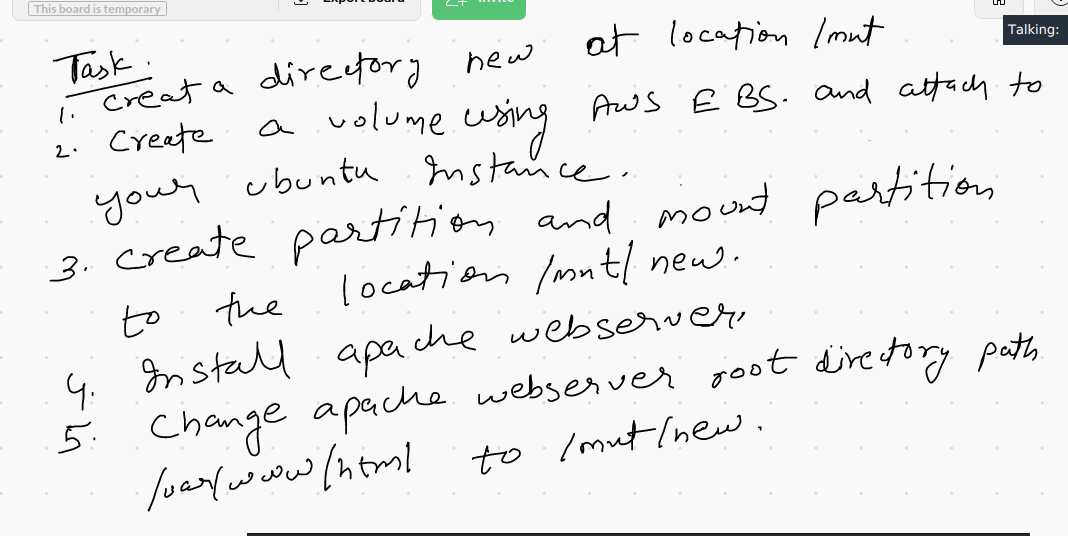 This board is temporary
Export board
Invite
Talking:
Task.
1. Creat a directory new at location /mnt
2. Create a volume using AWS EBS. and attach to
your ubuntu Instance.
3. Create partition and mount partition
to the location /mnt/new.
4. Install apache webserver,
5. Change apache webserver root directory path
/var/www/html to /mnt/new.